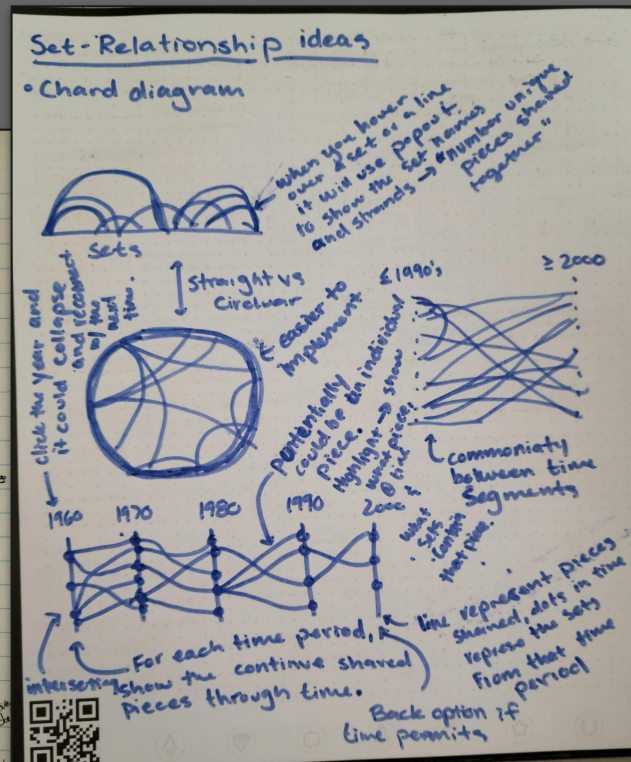 Set-Relationship ideas
• Chard diagram
when you hover
over a set or a line
it will use popout
to show the set names
and strands → "number unique
pieces shared
together"
Sets
straight vs
Circluar
easier to
implement
Click the year and
it could collapse
and reconnect
w/ the
next
time.
≤1990's
≥2000
commoniaty
between time
segments
potentially
could be an individual
piece.
Highlight → show
what piece,
@ time
+
what
sets
contain
that piece.
1960
1970
1980
1990
2000
interseting
For each time period,
show the continue shared
pieces through time.
line represent pieces
shared, dots in time
represe the sets
From that time
period
Back option if
time permits